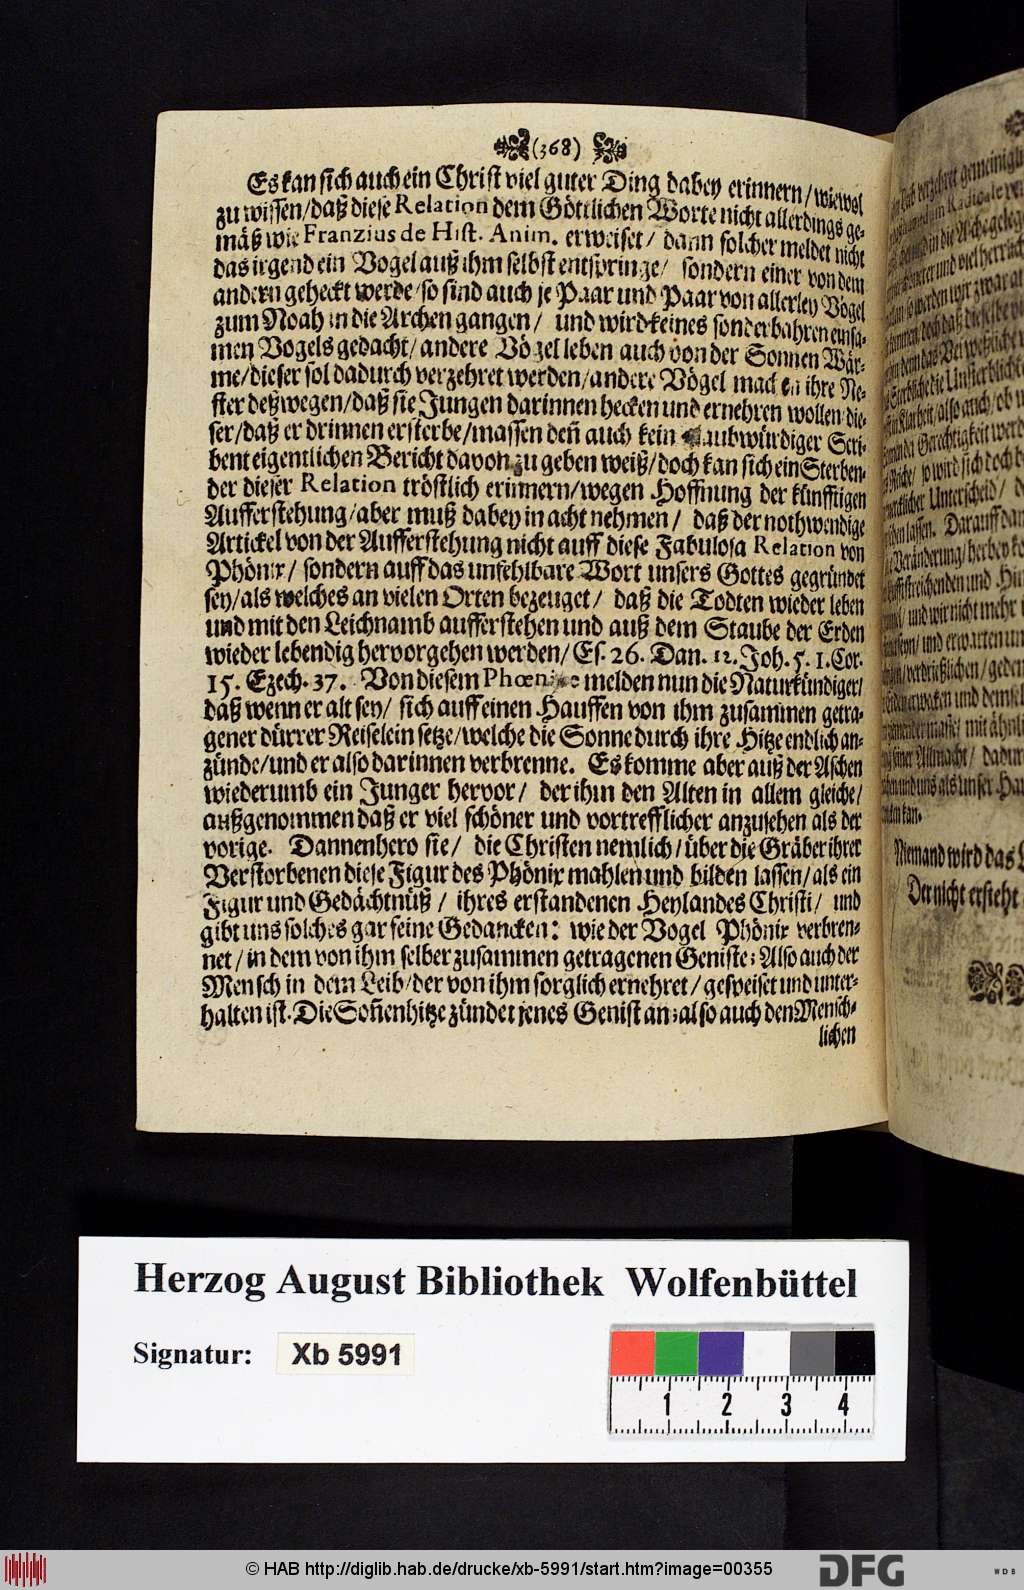 (368)
Es kan sich auch ein Christ viel guter Ding dabey erinnern/ wiewol
zu wissen/ daß diese Relation dem Göttlichen Worte nicht allerdings ge-
mäß wie Franzius de Hist. Anim. erweiset/ dann solcher meldet nicht
das irgend ein Vogel auß ihm selbst entspringe/ sondern einer von dem
andern geheckt werde/ so sind auch je Paar und Paar von allerley Vögel
zum Noah in die Archen gangen/ und wird keines sonderbahren einsa-
men Vogels gedacht/ andere Vögel leben auch von der Sonnen Wär-
me/ dieser sol dadurch verzehret werden/ andere Vögel machen ihre Ne-
ster deßwegen/ daß sie Jungen darinnen hecken und ernehren wollen/ die-
ser/ daß er drinnen ersterbe/ massen deñ auch kein glaubwürdiger Scri-
bent eigentlichen Bericht davon zu geben weiß/ doch kan sich ein Sterben-
der dieser Relation tröstlich erinnern/ wegen Hoffnung der künfftigen
Aufferstehung/ aber muß dabey in acht nehmen/ daß der nothwendige
Artickel von der Aufferstehung nicht auff diese Fabulosa Relation von
Phönix/ sondern auff das unfehlbare Wort unsers Gottes gegründet
sey/ als welches an vielen Orten bezeuget/ daß die Todten wieder leben
und mit den Leichnamb aufferstehen und auß dem Staube der Erden
wieder lebendig hervorgehen werden/ Es. 26. Dan. 12. Joh. 5. 1. Cor.
15. Ezech. 37. Von diesem Phœnice melden nun die Naturkündiger/
daß wenn er alt sey/ sich auff einen Hauffen von ihm zusammen getra-
gener dürrer Reiselein setze/ welche die Sonne durch ihre Hitze endlich an-
zünde/ und er also darinnen verbrenne. Es komme aber auß der Aschen
wiederumb ein Junger hervor/ der ihm den Alten in allem gleiche/
außgenommen daß er viel schöner und vortrefflicher anzusehen als der
vorige. Dannenhero sie/ die Christen nemlich/ über die Gräber ihrer
Verstorbenen diese Figur des Phönix mahlen und bilden lassen/ als ein
Figur und Gedächtnüß/ ihres erstandenen Heylandes Christi/ und
gibt uns solches gar feine Gedancken: wie der Vogel Phönix verbren-
net/ in dem von ihm selber zusammen getragenen Geniste; Also auch der
Mensch in dem Leib/ der von ihm sorglich ernehret/ gespeiset und unter-
halten ist. Die Soñenhitze zündet jenes Genist an; also auch den Mensch-
lichen
Niemand wird das
Der nicht ersteht
Herzog August Bibliothek Wolfenbüttel
Signatur: Xb 5991
1 2 3 4
© HAB http://diglib.hab.de/drucke/xb-5991/start.htm?image=00355
DFG
WDB